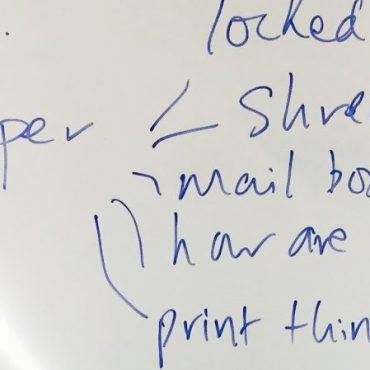 locked
per < Shre
mail bo
how are
print thin